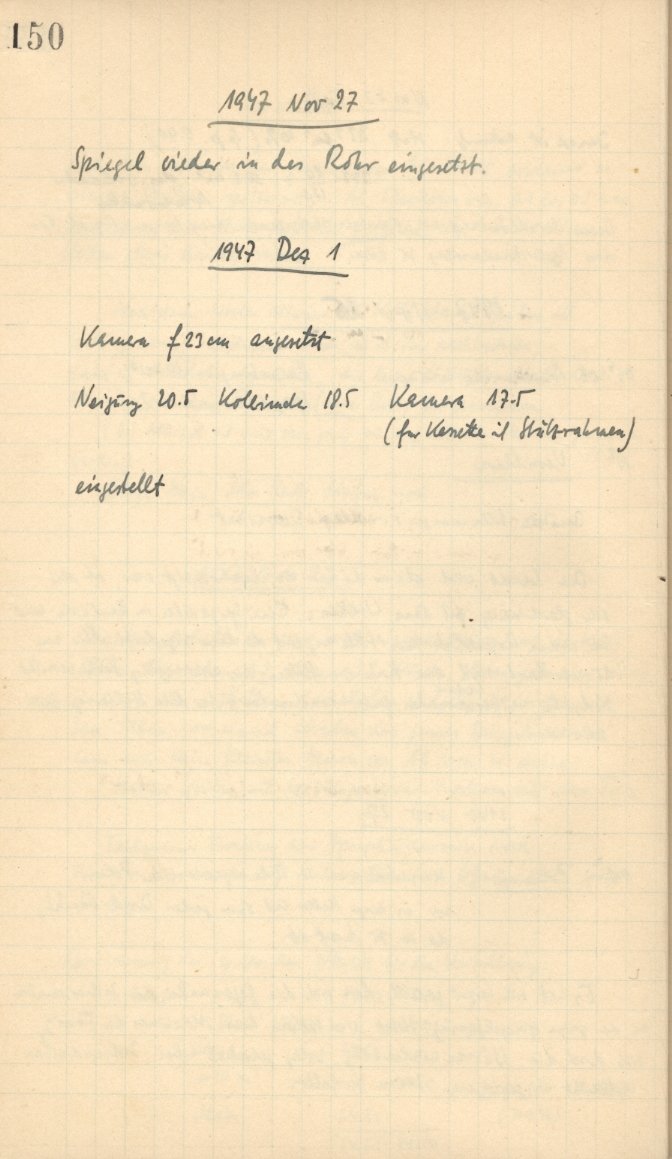 150
1947 Nov 27
Spiegel wieder in das Rohr eingesetzt.
1947 Dez 1
Kamera f 23 cm angesetzt
Neigung 20.5 Kollimator 18.5 Kamera 17.5
(für Kassette mit Stützrahmen)
eingestellt